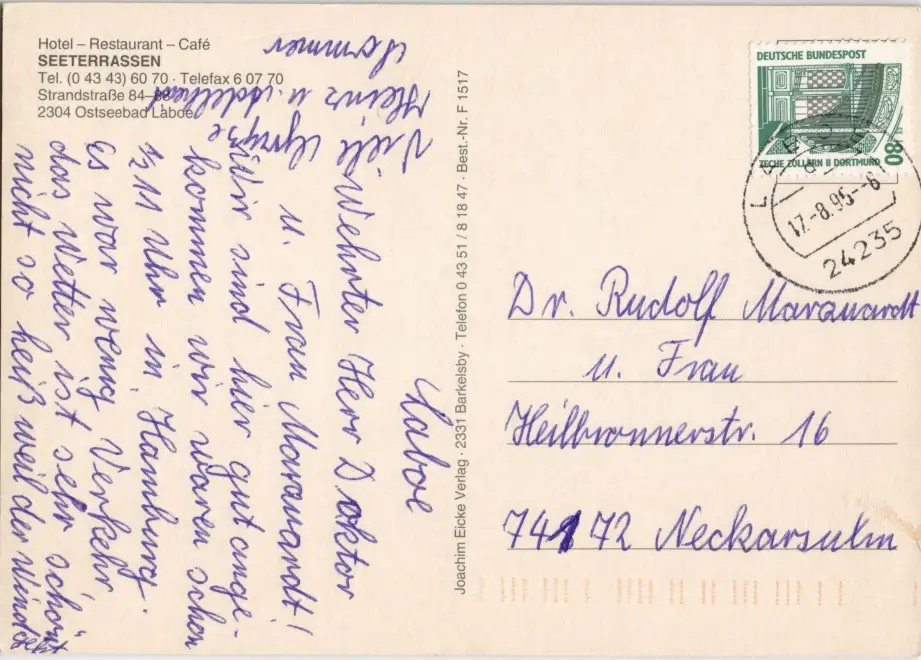 Hotel – Restaurant – Café
SEETERRASSEN
Tel. (0 43 43) 60 70 · Telefax 6 07 70
Strandstraße 84–88
2304 Ostseebad Laboe
Laboe
Wehrter Herr Doktor
u. Frau Marquardt!
Wir sind hier gut ange-
kommen wir waren schon
½11 Uhr in Hamburg.
Es war wenig Verkehr
das Wetter ist sehr schön
nicht so heiß weil der Wind
Viele Grüße
Heinz u. Adelheid
Sommer
Joachim Eicke Verlag · 2331 Barkelsby · Telefon 0 43 51 / 8 18 47 · Best.-Nr. F 1517
DEUTSCHE BUNDESPOST
80
ZECHE ZOLLERN II DORTMUND
17.-8.95--8
24235
Dr. Rudolf Marquardt
u. Frau
Heilbronnerstr. 16
74172 Neckarsulm